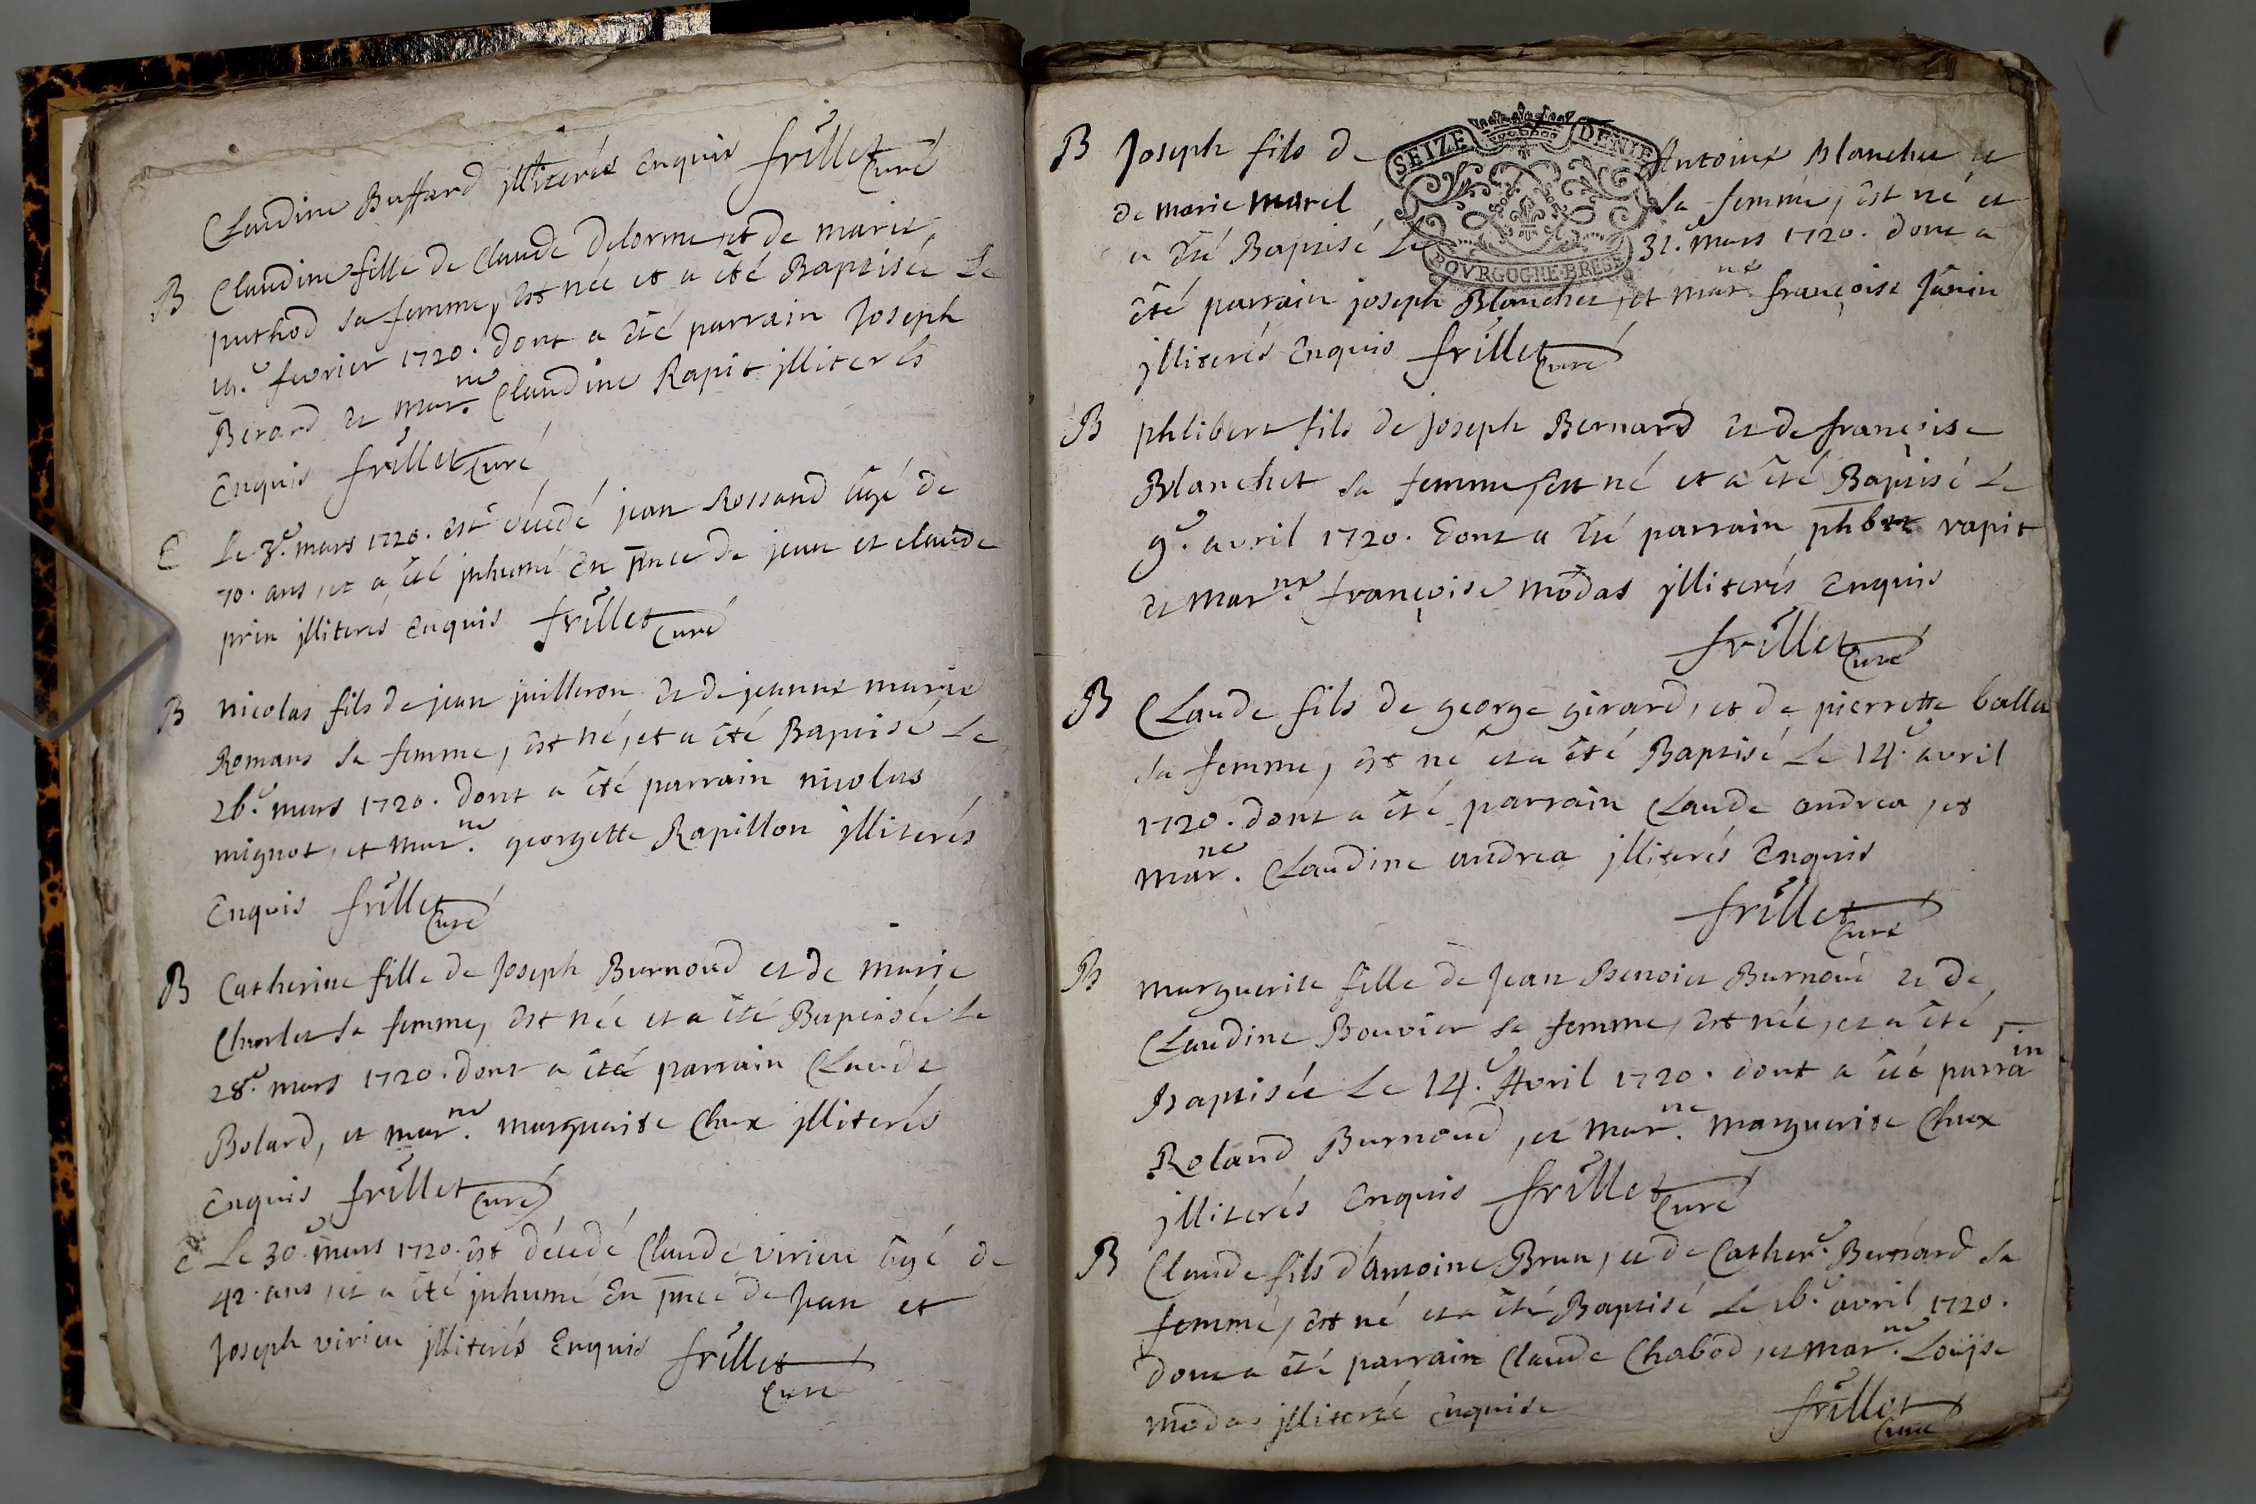 Claudine Buffard jlliterés Enquis frillet Curé
B Claudine fille de Claude Delorme, et de marie
puthod sa femme, est née et a été Baptisée Le
fevrier 1720. dont a été parrain Joseph
Berard et mar.ne Claudine Rapit jlliterés
Enquis frillet Curé
E Le 3.e mars 1720. est décédé jean Rossand âgé de
70. ans, et a été jnhumé En pnce de jean et claude
prin jlliterés Enquis frillet Curé
B nicolas fils de jean juilleron et de jeanne marie
Romans sa femme, est né, et a été Baptisé Le
26.e mars 1720. dont a été parrain nicolas
mignot, et mar.ne georgette Rapillon jlliterés
Enquis frillet Curé
B Catherine fille de Joseph Burnoud et de marie
Charlet sa femme, est née et a été Baptisée Le
28.e mars 1720. dont a été parrain Claude
Bolard, et mar.ne marguerite Chux jlliterés
Enquis frillet Curé
E Le 30.e mars 1720. est décédé Claude virieu âgé de
42. ans, et a été jnhumé En pnce de Jean et
Joseph virieu jlliterés Enquis frillet
Curé
B Joseph fils de Antoine Blanchet et
de marie marel sa femme, est né et
a été Baptisé Le 31.e mars 1720. dont a
été parrain joseph Blanchet, et mar.ne françoise Janin
jlliterés Enquis frillet Curé
SEIZE DENIE
BOVRGOGNE-BRESE
B phlibert fils de Joseph Bernard et de françoise
Blanchet sa femme, est né et a été Baptisé Le
9.e avril 1720. dont a été parrain phbert rapit
et mar.ne françoise modas jlliterés Enquis
frillet Curé
B Claude fils de george girard, et de pierrette balla
sa femme, est né et a été Baptisé Le 14.e avril
1720. dont a été parrain Claude andrea, et
mar.ne Claudine andrea jlliterés Enquis
frillet Curé
B marguerite fille de Jean Benoist Burnoud et de
Claudine Bouvier sa femme, est née, et a été
Baptisée Le 14.e Avril 1720. dont a été parrain
Roland Burnoud, et mar.ne marguerite Chux
jlliterés Enquis frillet Curé
B Claude fils d'antoine Brun, et de Cather.e Bernard sa
femme, est né et a été Baptisé Le 16.e avril 1720.
dont a été parrain Claude Chabod, et mar.ne Loüjse
modas jlliteré Enquise frillet Curé